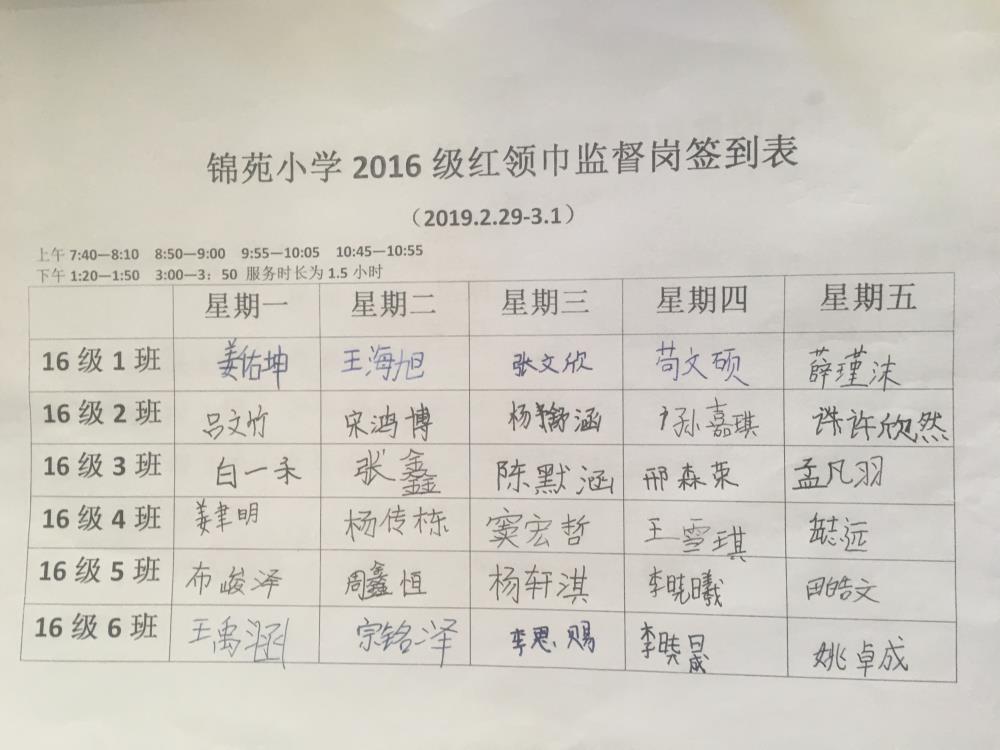 锦苑小学 2016 级红领巾监督岗签到表
（2019.2.29-3.1）
上午 7:40—8:10 8:50—9:00 9:55—10:05 10:45—10:55
下午 1:20—1:50 3:00—3：50 服务时长为 1.5 小时
星期一 星期二 星期三 星期四 星期五
16 级 1 班 姜佑坤 王海旭 张文欣 苟文硕 薛瑾沫
16 级 2 班 吕文竹 宋鸿博 杨舒涵 孙嘉琪 许欣然
16 级 3 班 白一禾 张鑫 陈默涵 邢森荣 孟凡羽
16 级 4 班 姜聿明 杨传栋 窦宏哲 王雪琪
16 级 5 班 布峻泽 周鑫恒 杨轩淇 李晓曦 田皓文
16 级 6 班 王禹涵 宗铭泽 李思赐 李晓晟 姚卓成